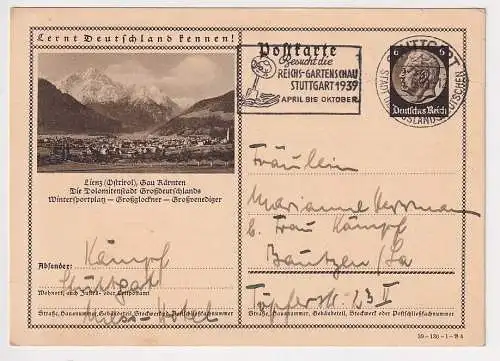 Lernt Deutschland kennen!
Postkarte
Besucht die
REICHS-GARTENSCHAU
STUTTGART 1939
APRIL BIS OKTOBER
STUTTGART
STADT DER AUSLANDSDEUTSCHEN
6 6
Deutsches Reich
Lienz (Osttirol), Gau Kärnten
Die Dolomitenstadt Großdeutschlands
Wintersportplatz — Großglockner — Großvenediger
Absender:
Kämpf
Stuttgart
Wohnort, auch Zustell- oder Leitpostamt
Hotel
Straße, Hausnummer, Gebäudeteil, Stockwerk od. Postschließfachnummer
Fräulein
Marianne Herrmann
b. Frau Kämpf
Bautzen/Sa
Töpferstr. 23 II
Straße, Hausnummer, Gebäudeteil, Stockwerk oder Postschließfachnummer
39—130—1—B 4